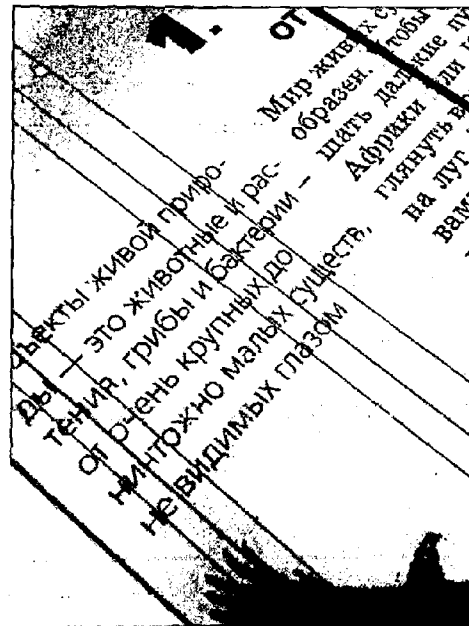 1.
от
Мир живых
образен. чтобы
шать далёкие
Африки или
глянуть
на луг
вам
объекты живой приро-
ды — это животные и рас-
тения, грибы и бактерии —
от очень крупных до
ничтожно малых существ,
не видимых глазом